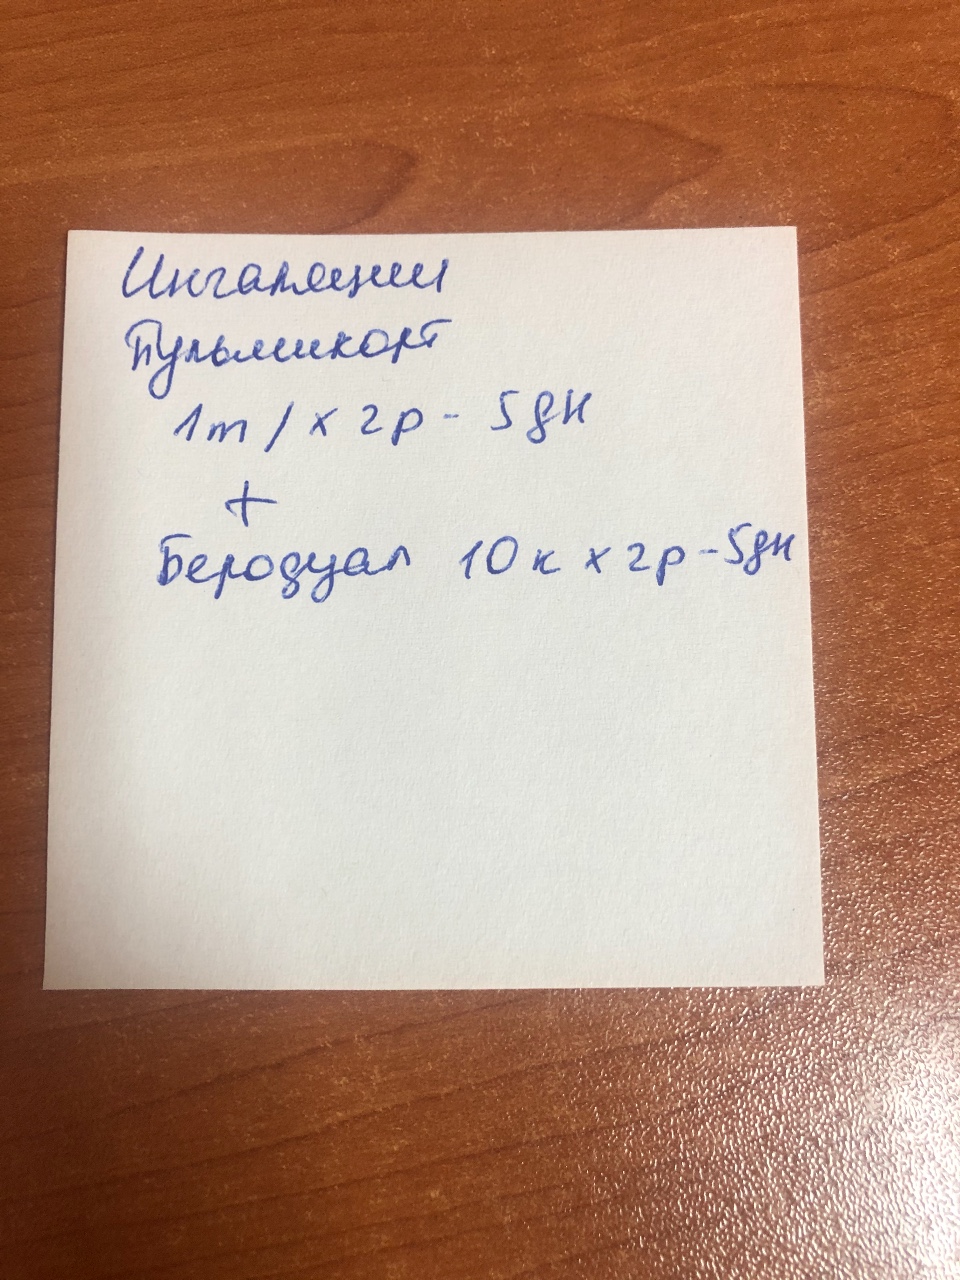 Ингаляции
Пульмикорт
1т / х 2р - 5дн
+
Беродуал 10к х 2р - 5дн